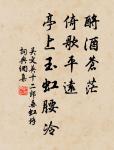 酹酒蒼茫
倚歌平遠
亭上玉虹腰冷
吴文英十二郎垂虹桥
詞典網集